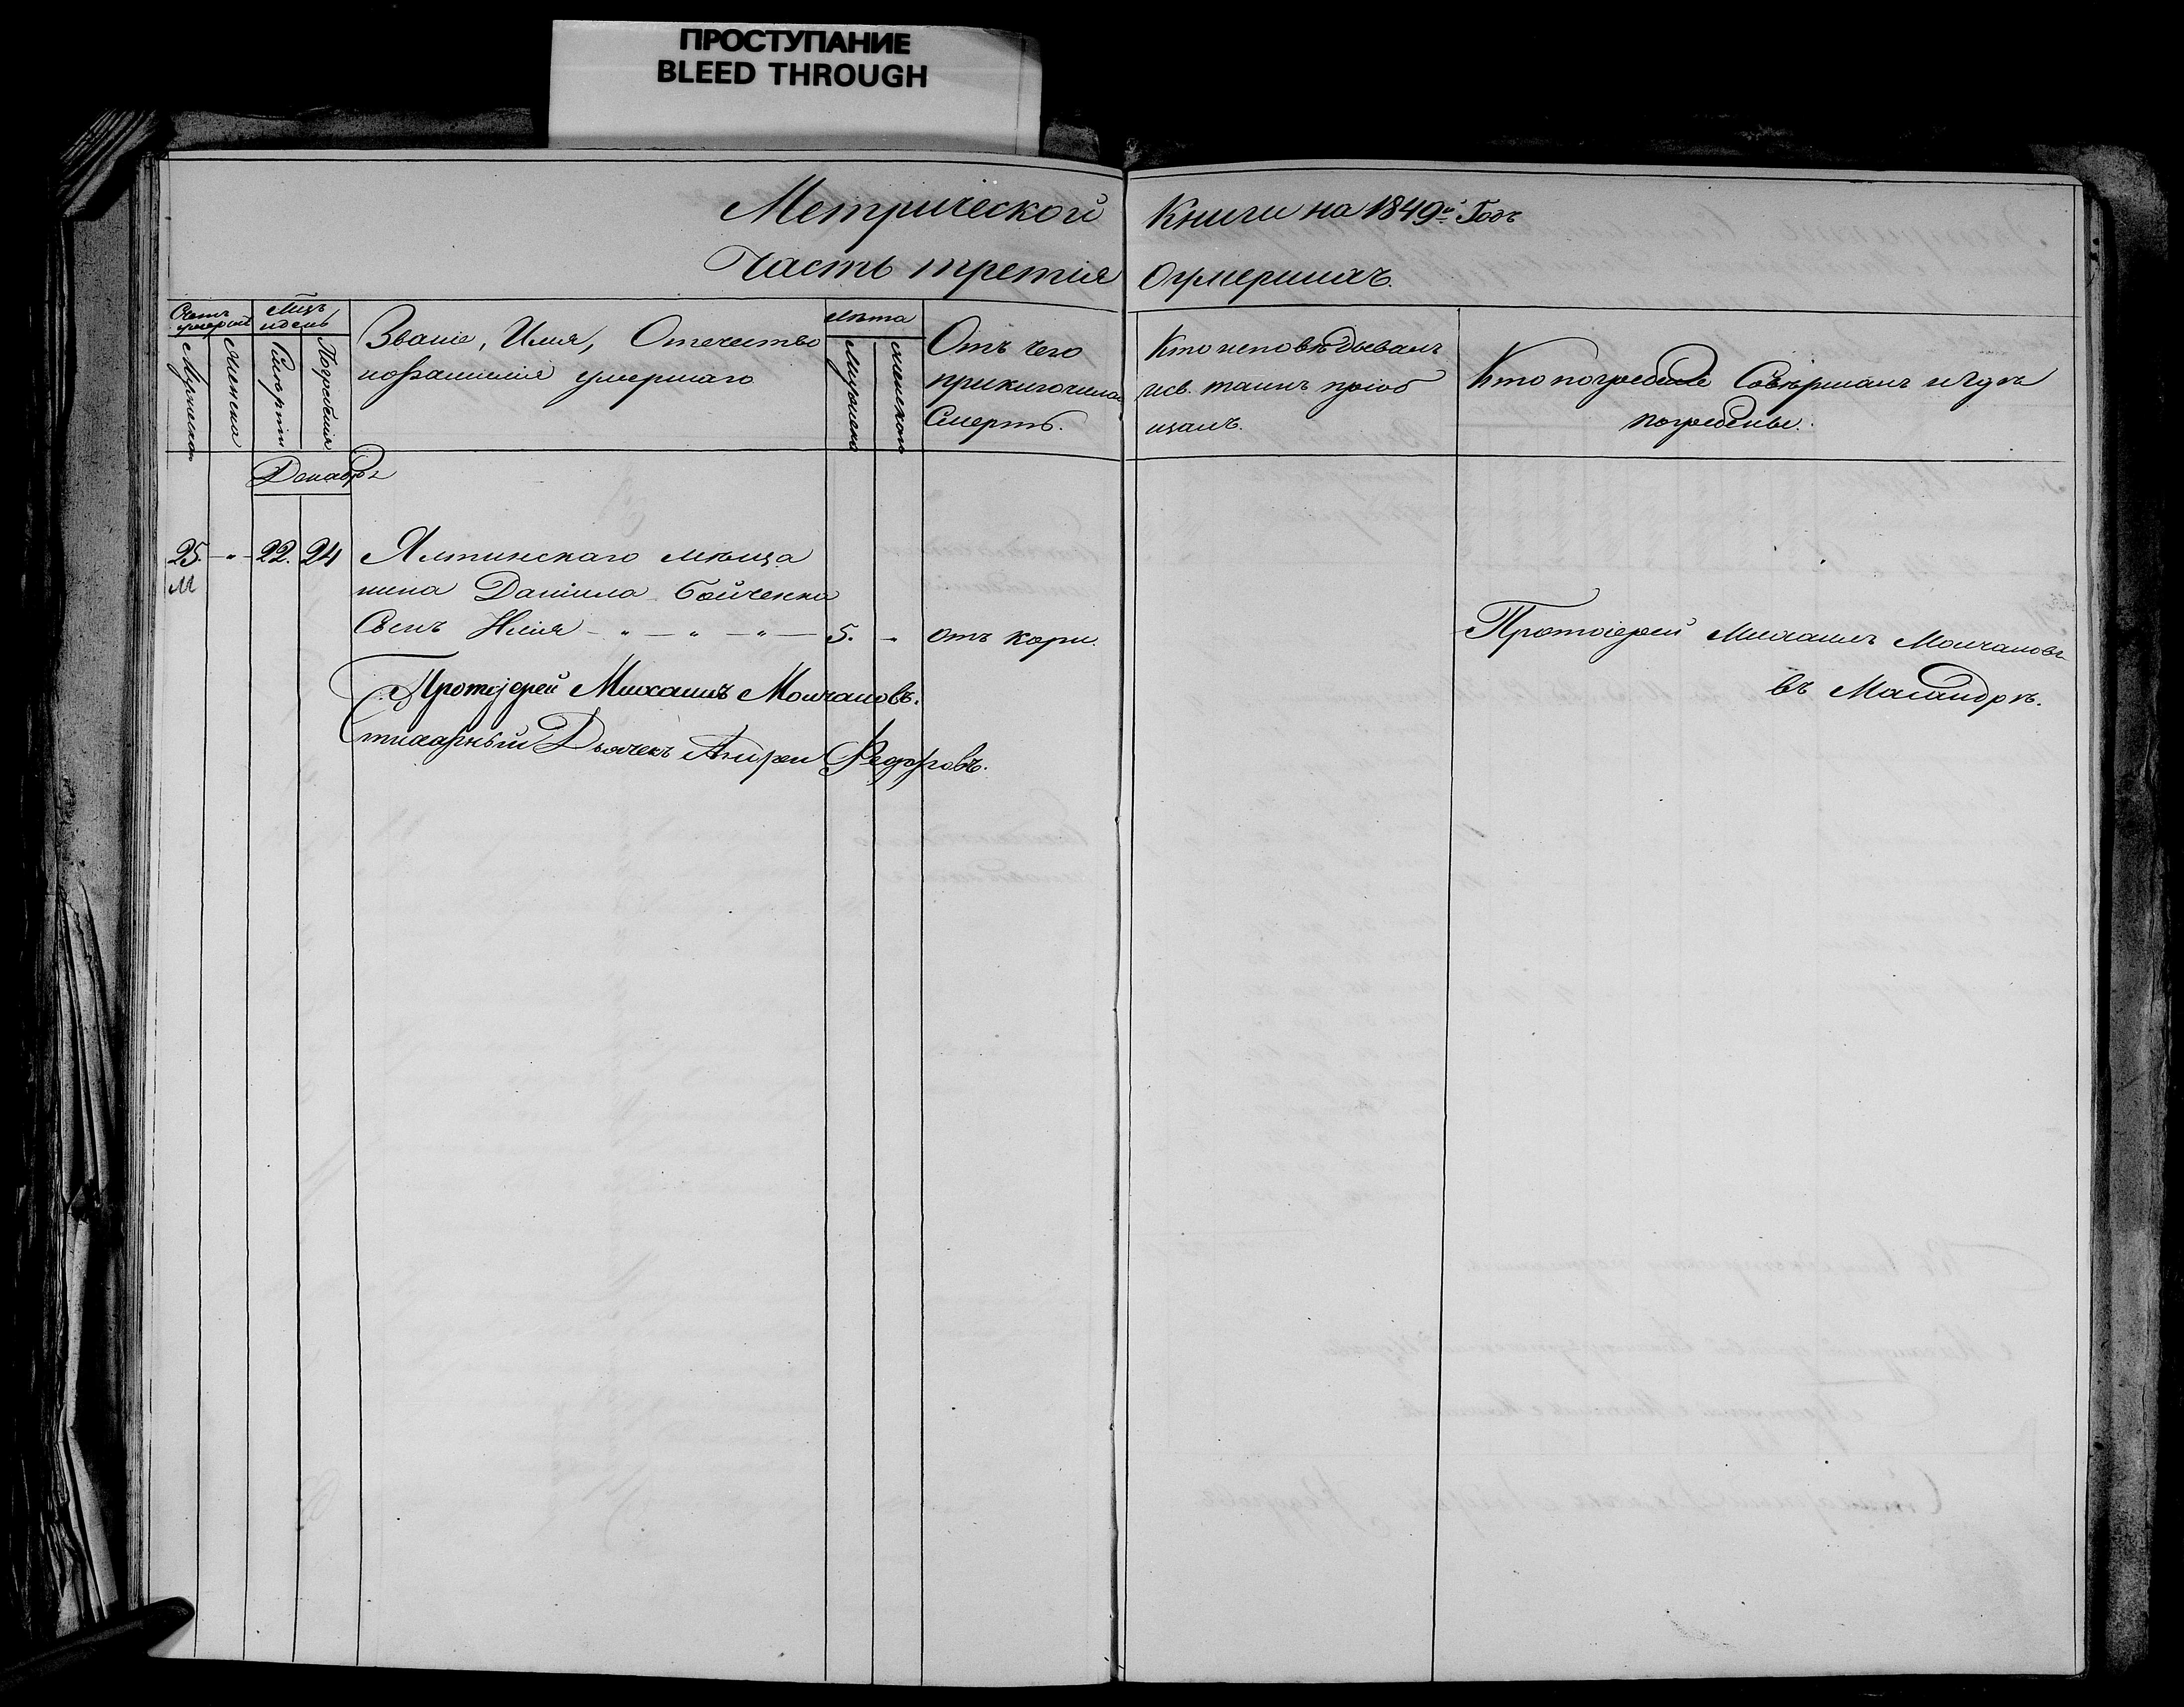 ПРОСТУПАНИЕ
BLEED THROUGH
Метрической Книги на 1849й. Годъ
Часть третія О умершихъ.
Счетъ умершихъ
Мужеска
Женска
Мѣсѣцъ и день
Смерти
Погребенія
Званіе, Имя, Отечество
и фамилія умершаго
Лѣта
Мужеска
Женскаго
Отъ чего
приключилась
Смерть.
Кто исповѣдывалъ
и св. таинъ пріоб
щалъ.
Кто погребеніе Совѣршалъ и гдѣ
погребены.
Декабрь
25. " 22. 24 Ялтинскаго мѣща
М
нина Даніила Бойченка
Сынъ Илія - " - " - " - 5. - отъ кори.
Протоіерей Михаилъ Молчановъ
въ Масандрѣ.
Протоіерей Михаилъ Молчановъ.
Стихарный Дьячекъ Андрей Федоровъ.